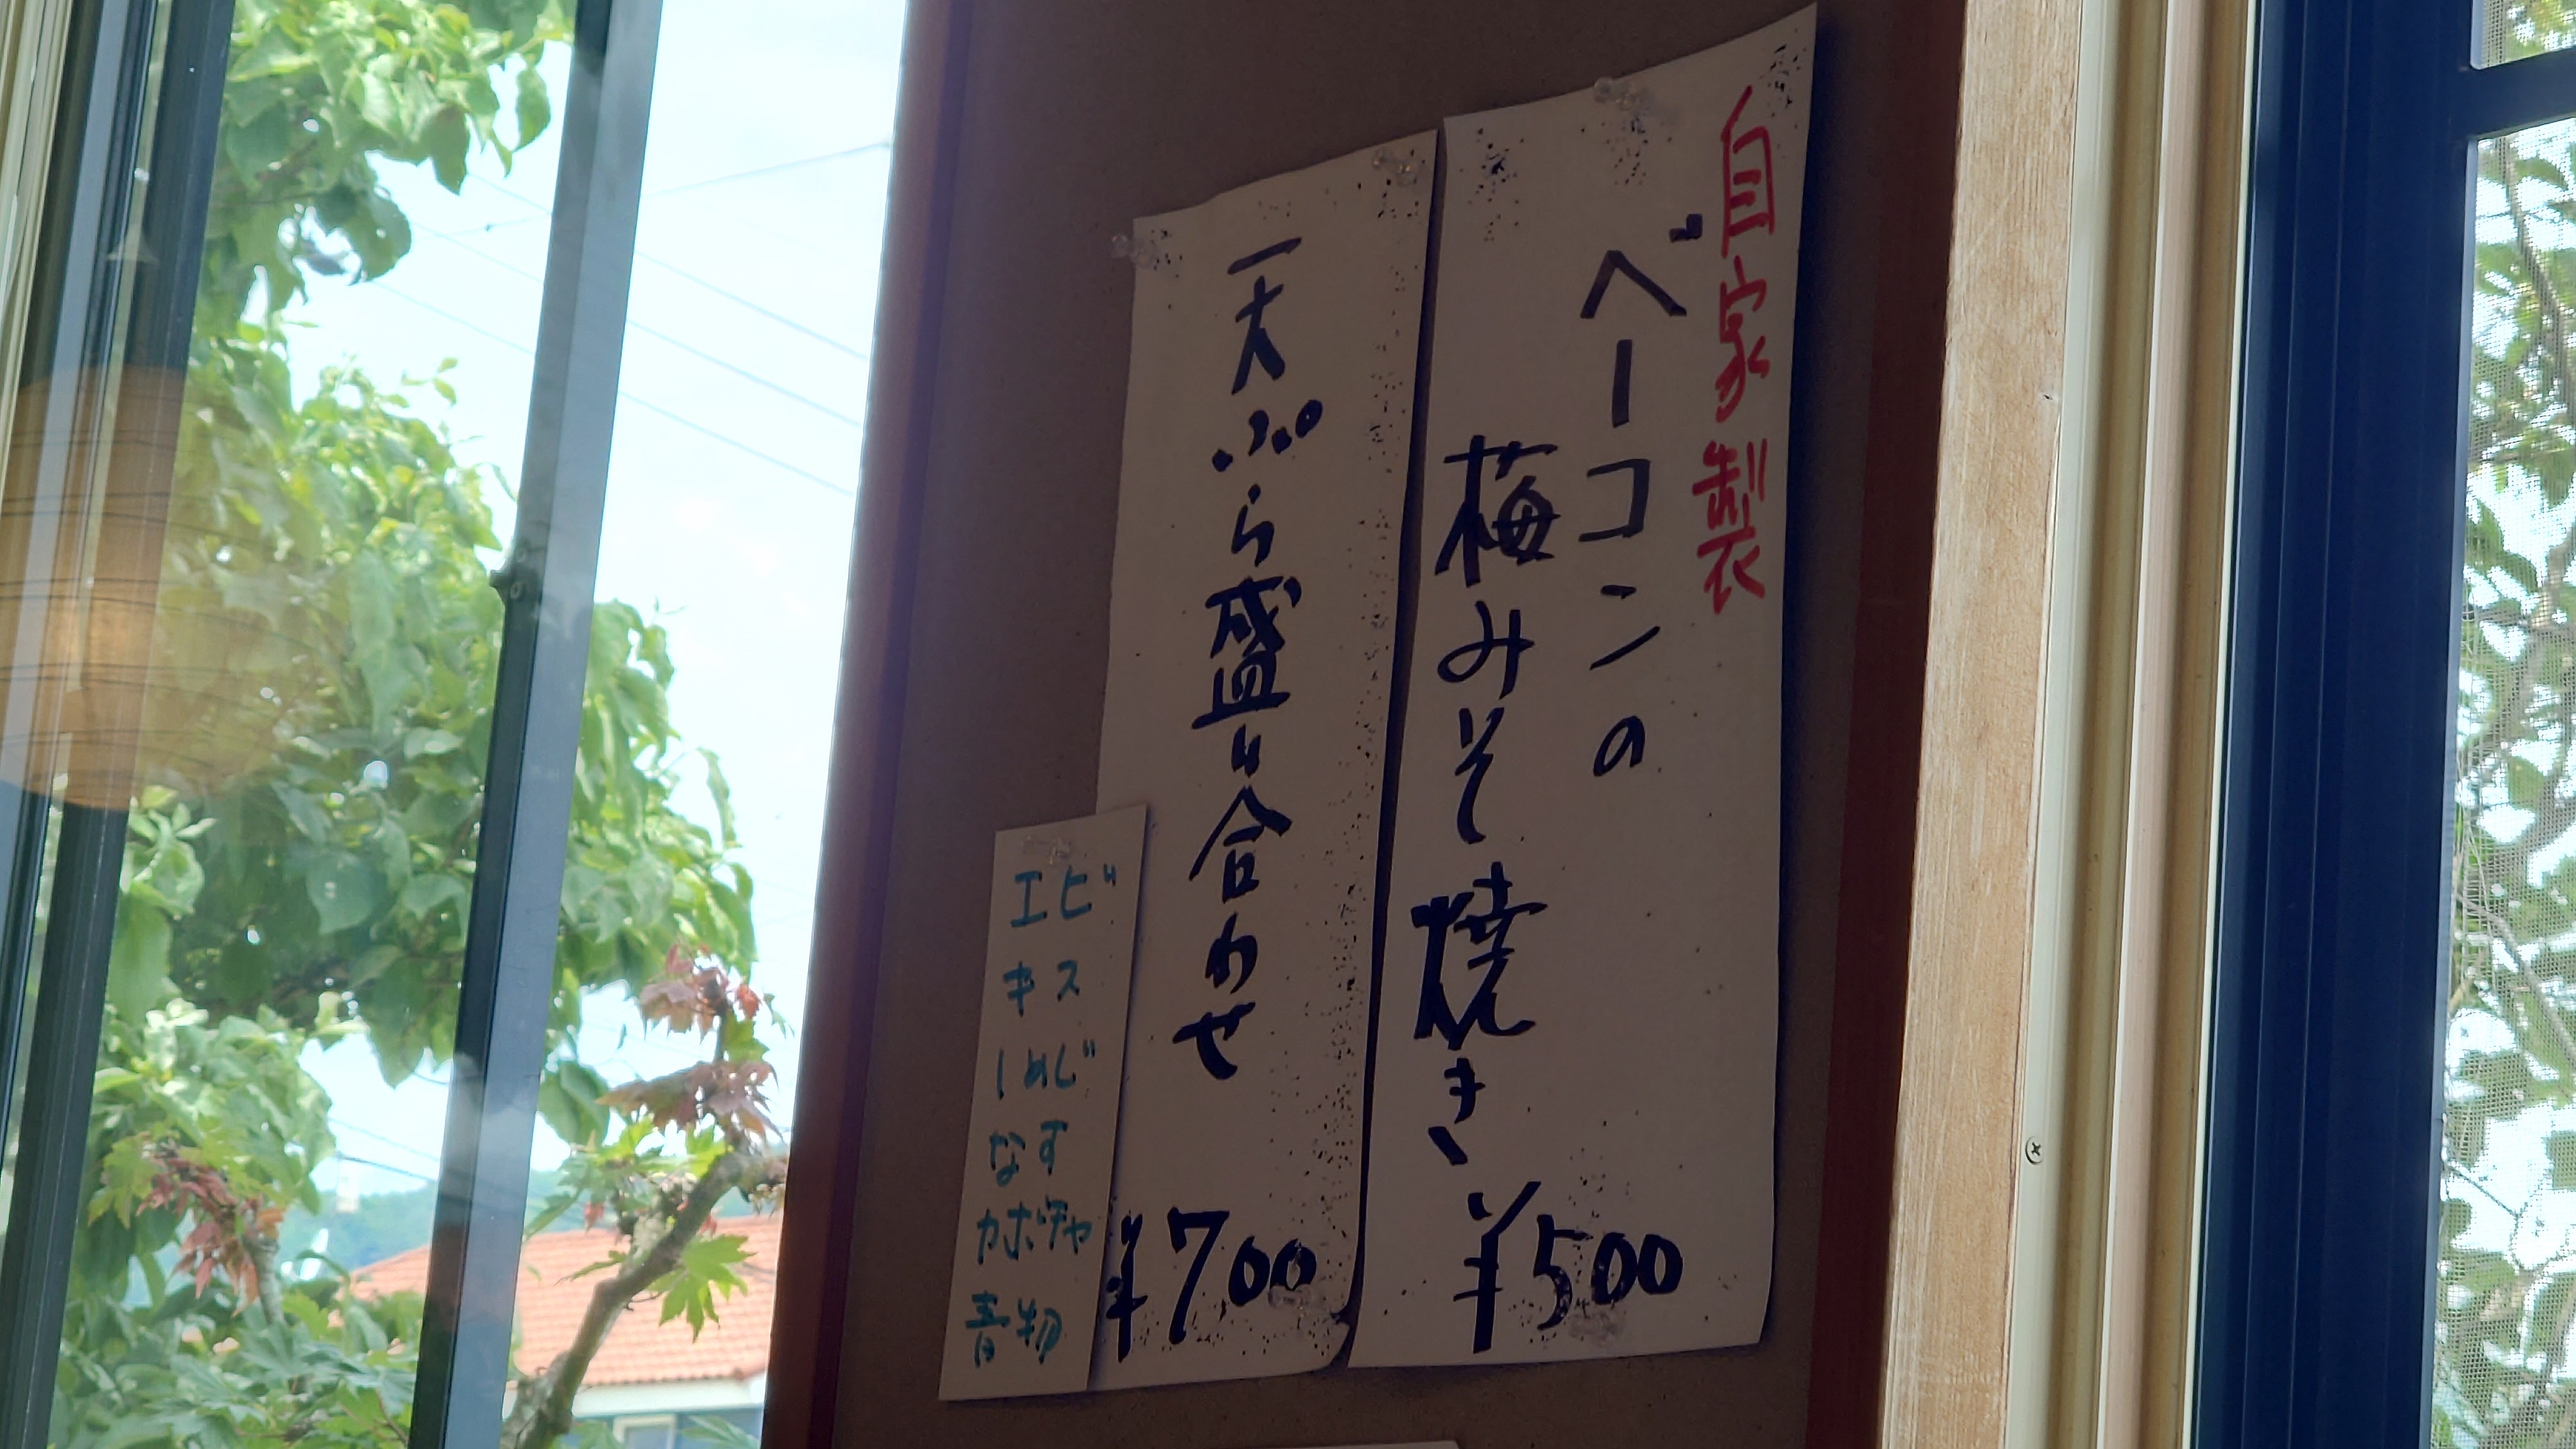 自家製
ベーコンの
梅みそ焼き
¥500
天ぷら盛り合わせ
¥700
エビ
キス
しめじ
なす
カボチャ
青物